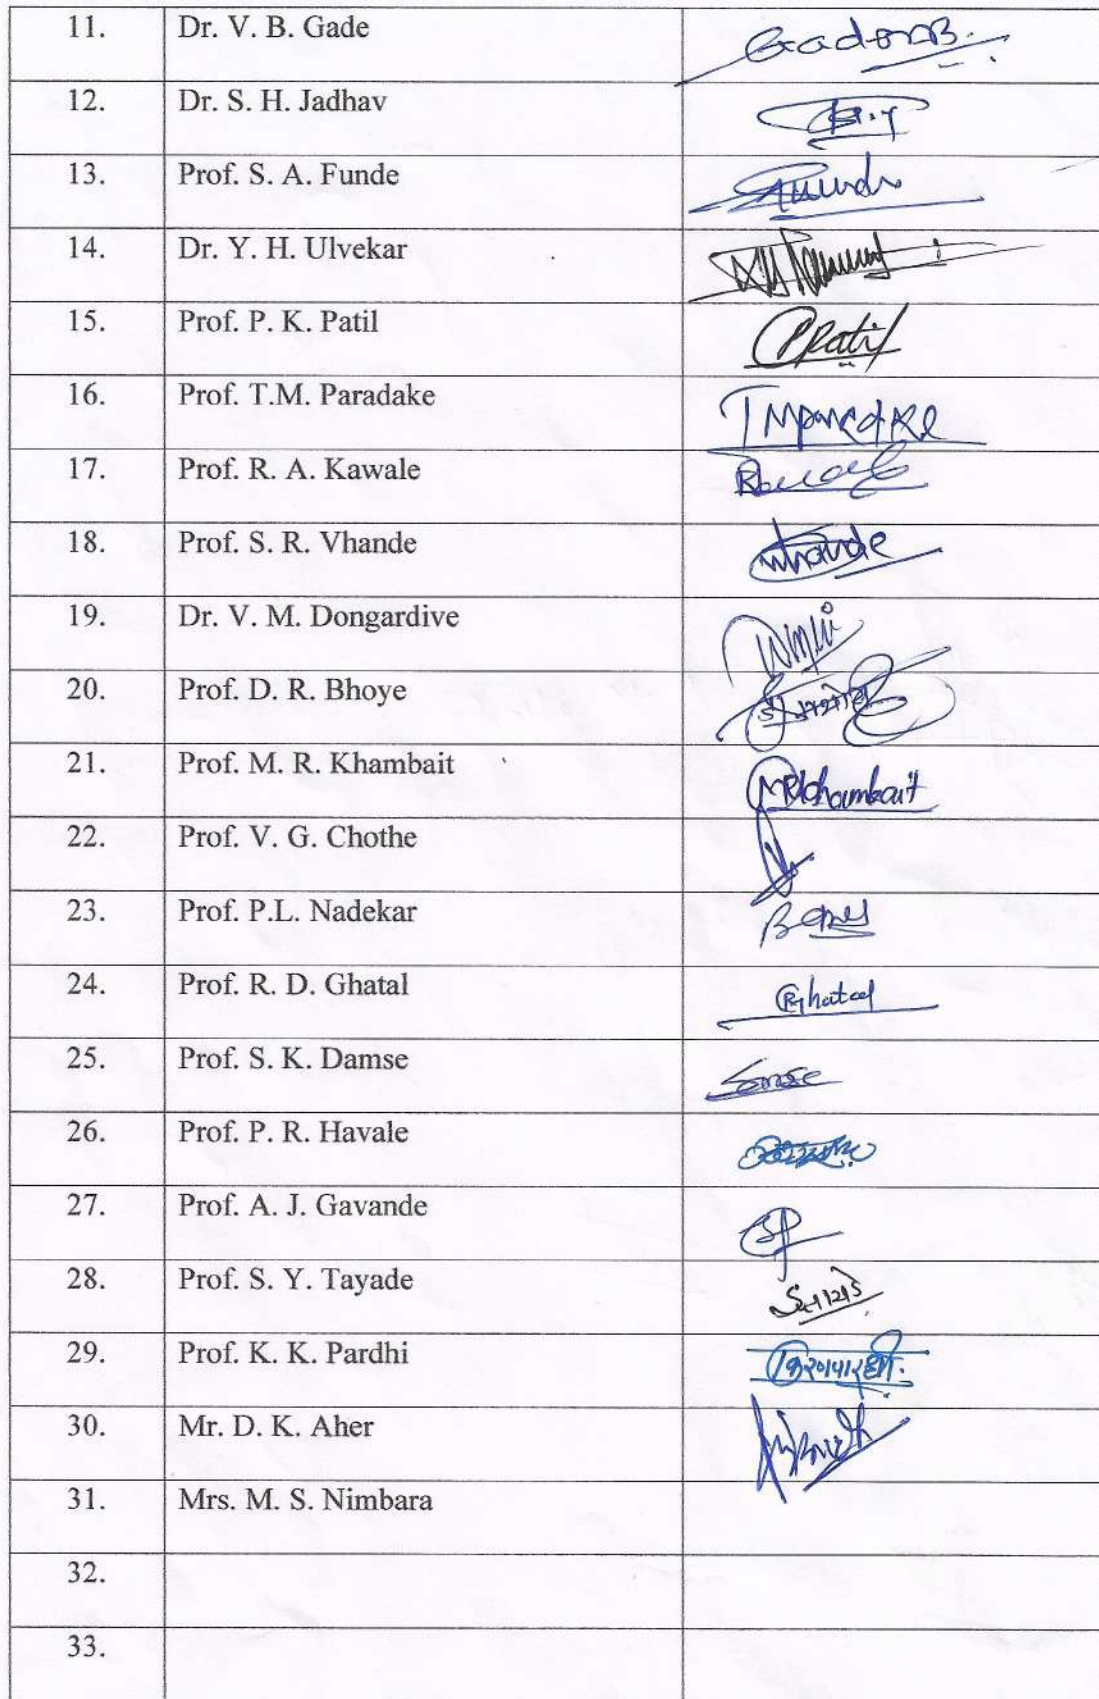 11. Dr. V. B. Gade
12. Dr. S. H. Jadhav
13. Prof. S. A. Funde
14. Dr. Y. H. Ulvekar
15. Prof. P. K. Patil PPatil
16. Prof. T.M. Paradake
17. Prof. R. A. Kawale
18. Prof. S. R. Vhande Vhande
19. Dr. V. M. Dongardive
20. Prof. D. R. Bhoye
21. Prof. M. R. Khambait MRKhambait
22. Prof. V. G. Chothe
23. Prof. P.L. Nadekar
24. Prof. R. D. Ghatal Ghatal
25. Prof. S. K. Damse
26. Prof. P. R. Havale
27. Prof. A. J. Gavande
28. Prof. S. Y. Tayade
29. Prof. K. K. Pardhi
30. Mr. D. K. Aher
31. Mrs. M. S. Nimbara
32.
33.